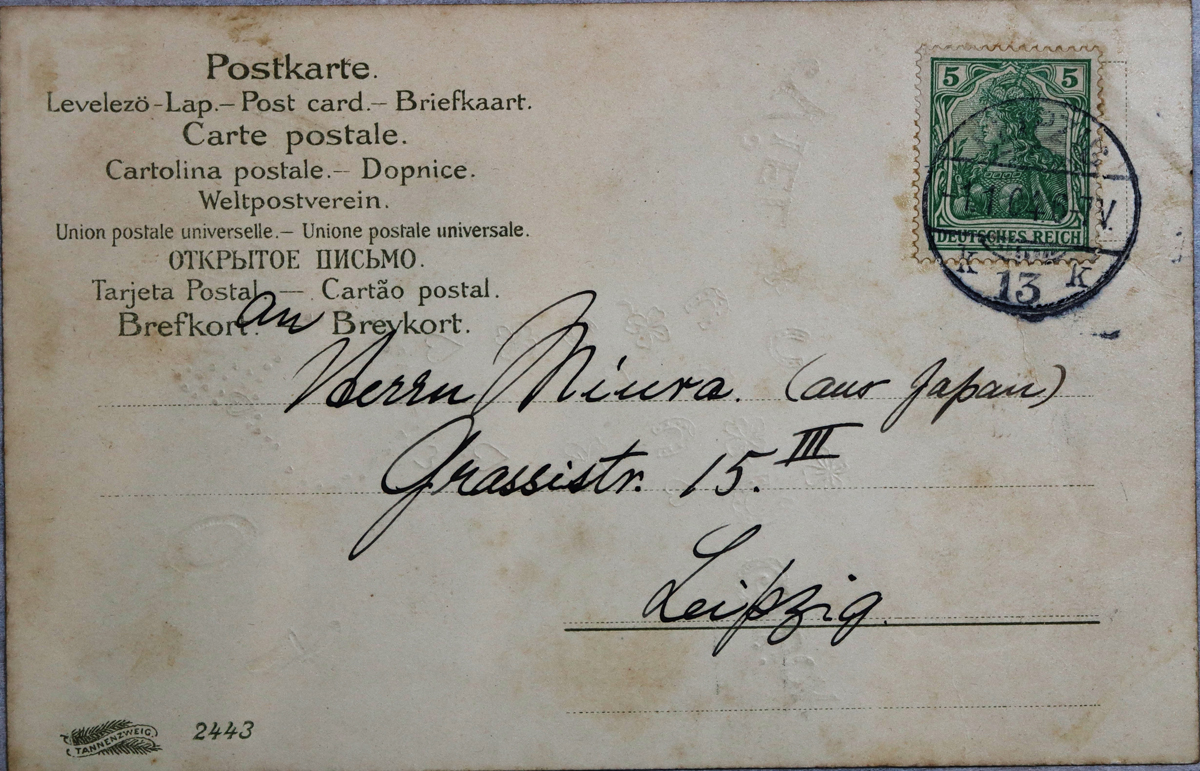 Postkarte.
Levelezö-Lap.— Post card.— Briefkaart.
Carte postale.
Cartolina postale.— Dopnice.
Weltpostverein.
Union postale universelle.— Unione postale universale.
ОТКРЫТОЕ ПИСЬМО.
Tarjeta Postal — Cartão postal.
Brefkort. Brevkort.
5 5
DEUTSCHES REICH
K 13 K
An
Herrn Miura. (aus Japan)
Grassistr. 15. III
Leipzig.
TANNENZWEIG
2443